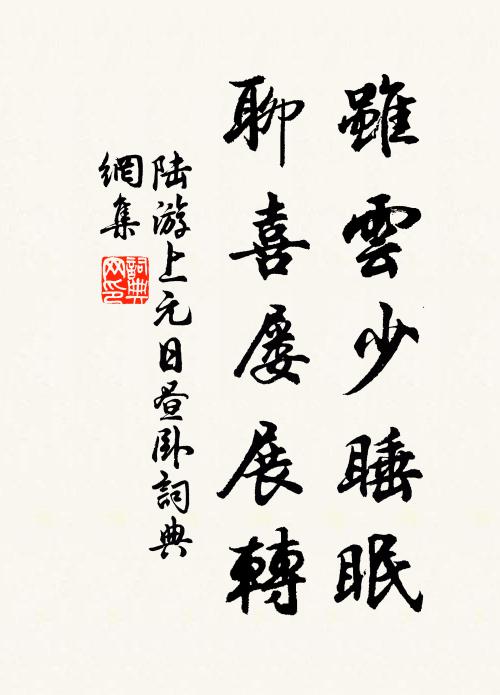 雖雲少睡眠
聊喜屡展轉
陸游上元日昼卧詞典
網集
詞典
网印